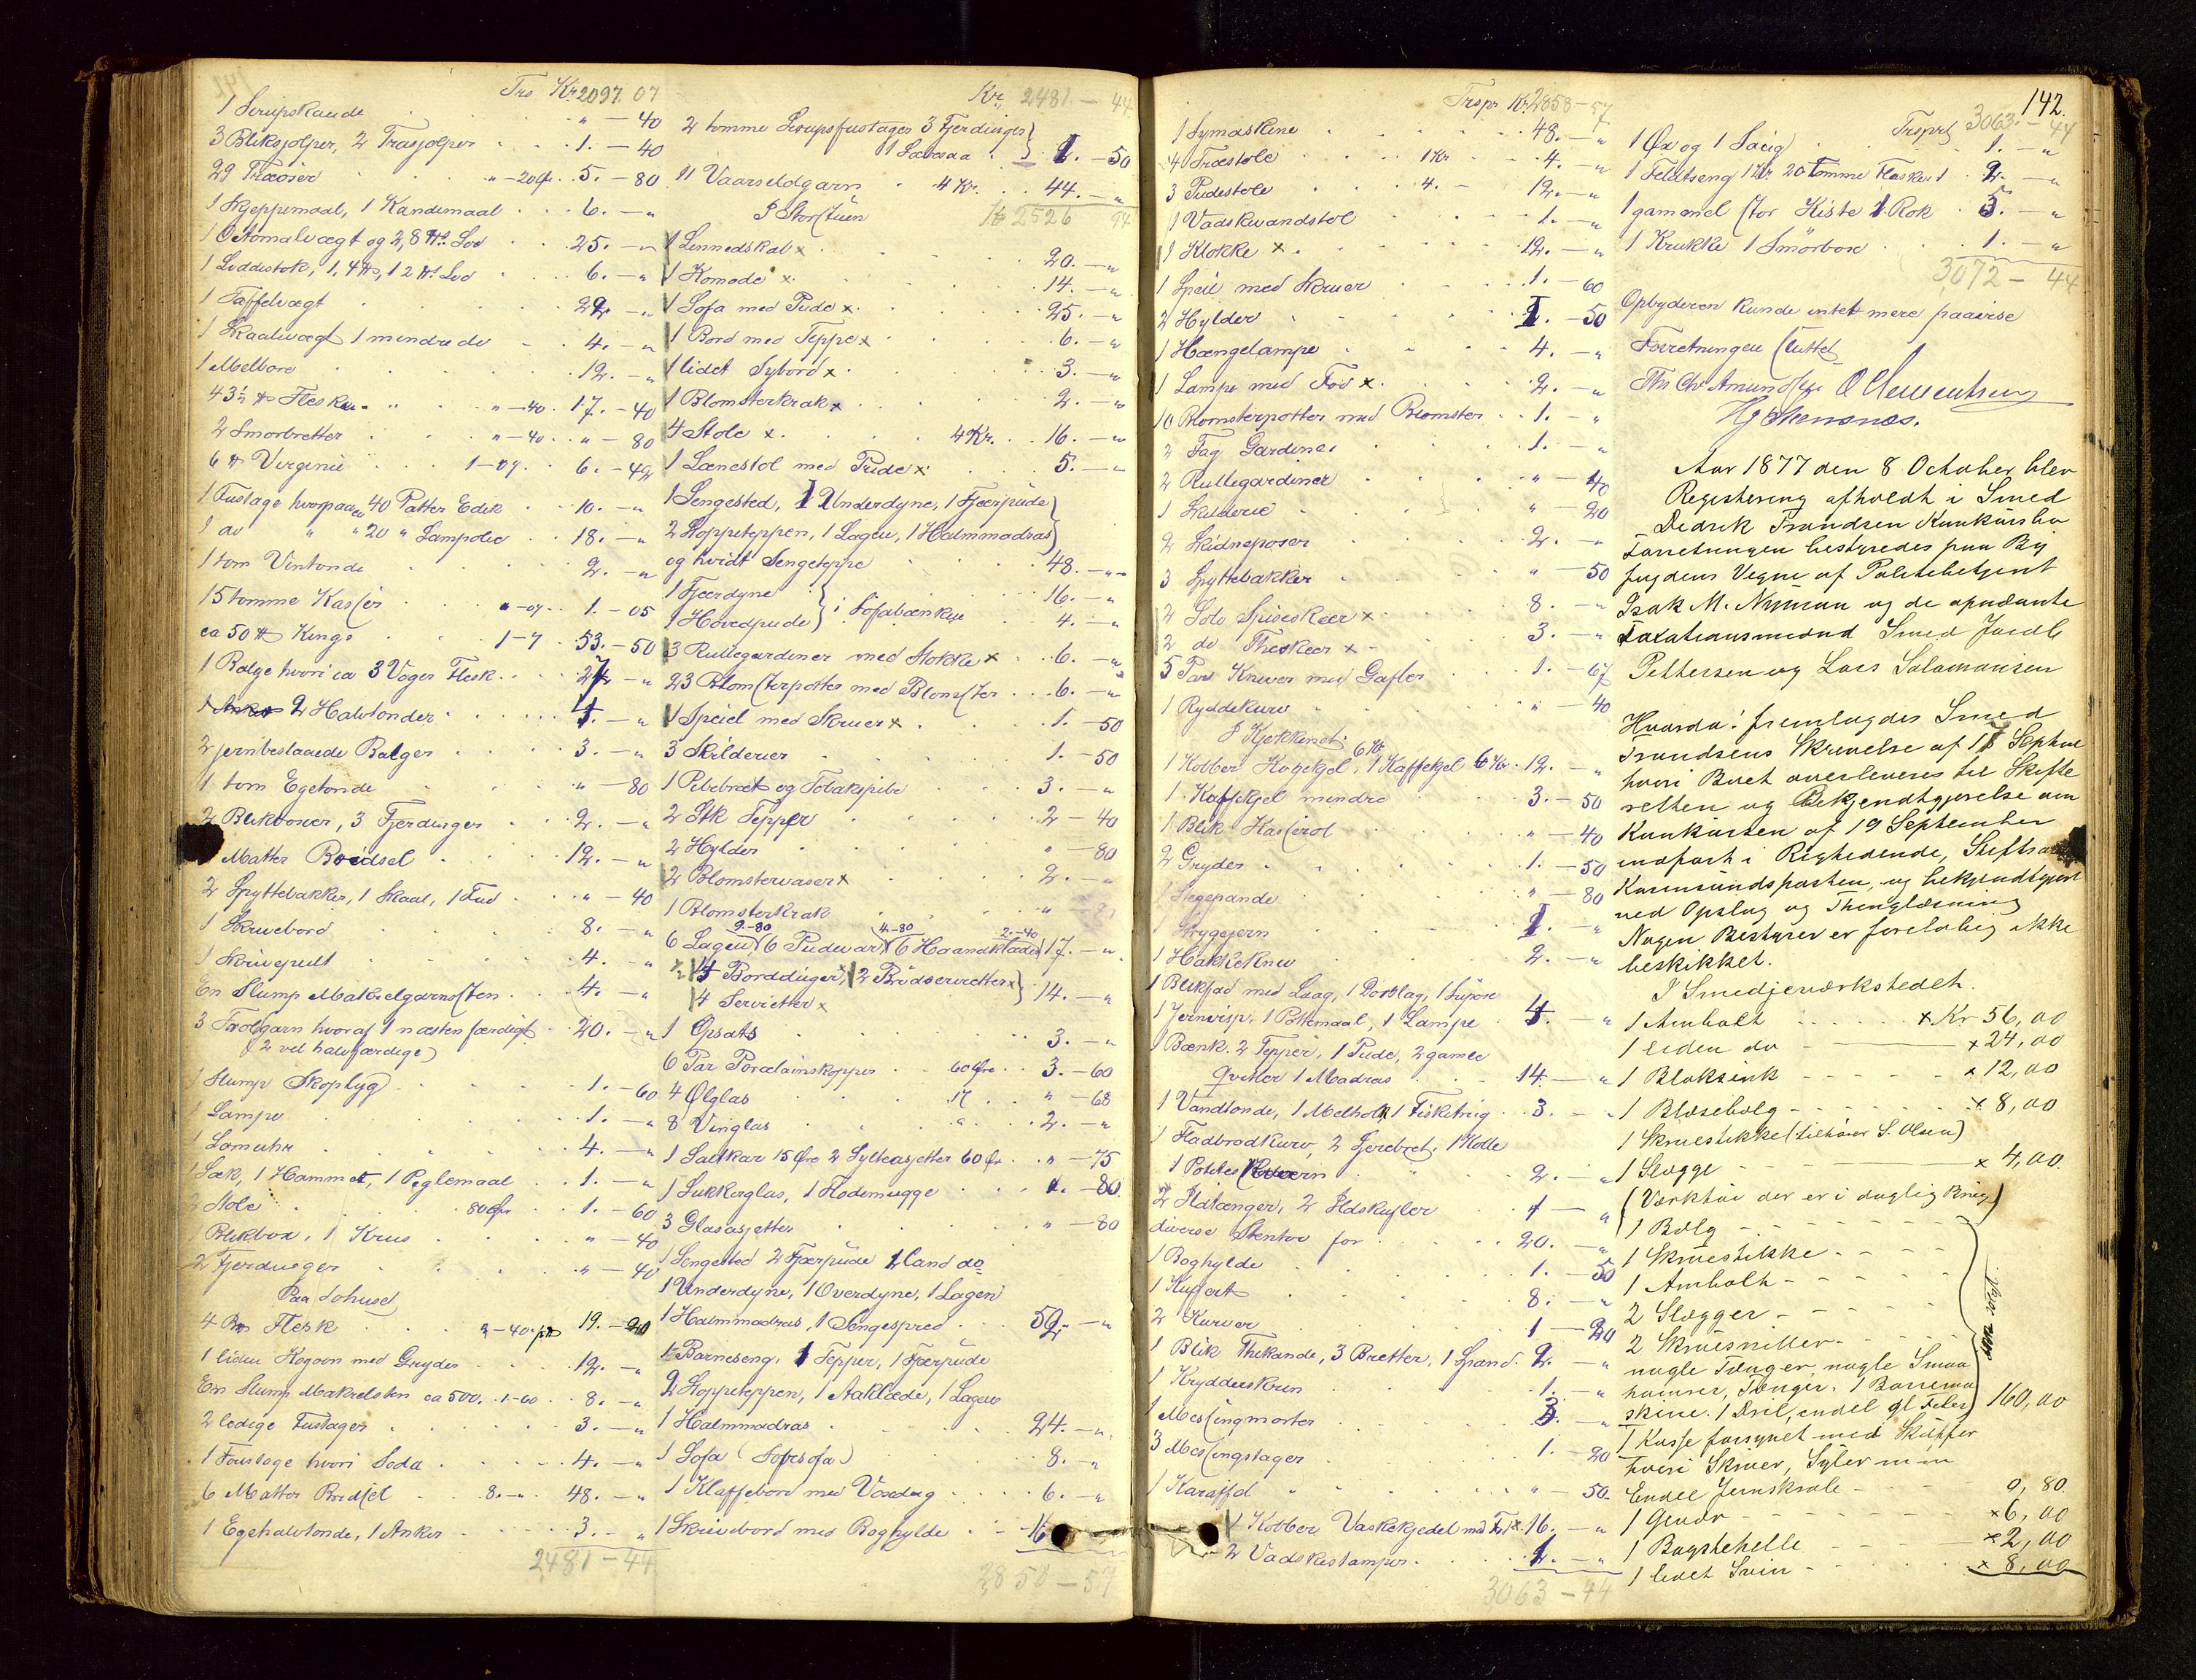 Trs Kr. 2097.07
1 Sirupskande " – 40
3 Blikjolper, 2 Træsjolper 1. – 40
29 Træøser " – 20 Ør. 5. – 80
1 Skjeppemaal, 1 Kandemaal 6. – "
1 Liddistok, 1, 4 ℔, 1 2 ℔ Lod 6. – "
1 Taffelvægt 22 – "
1 Skaalvægt 1 mindre do 4. – "
1 Melbore 12. – "
43½ ℔ Flesk " – 40. 17. – 40
2 Smørbretter " – 40 " – 80
6 ℔ Virginie 1 – 07. 6. – 42
1 Fustage hvorpaa ca 40 Potter Edik 10. – "
1 do " " 20 " Lampolie 18. – "
1 tom Vintønde 2. – "
15 tomme Kasser " – 07 1. – 05
ca 50 ℔ Kings 1 – 7 53. – 50
1 Balge hvori ca 3 Voger Flesk 27 – "
2 Halvtønder 1. – "
2 jernbeslaaede Balger 3. – "
1 tom Egetønde " – 80
2 Blikboxer, 3 Fjerdinger 2. – "
Matter Brødsel 12. – "
2 Spyttebakker, 1 Skaal, 1 Fad " – 40
1 Skrivebord 8. – "
1 Skrivepult 4. – "
En Slump Makrelgarnsten 4. – "
3 Trolgarn hvoraf 1 næsten færdigt 20. – "
(2 vel halvfærdige)
1 Slump Skoptyg 1. – 60
1 Lampe 1. – "
1 Lomuhr 4. – "
1 Sæk, 1 Hammet, 1 Peglemaal 1. – "
2 Stole 80 Øre 1. – 60
1 Blikbox, 1 Krus " – 40
2 Fjerdinger " – 40
Paa Sohuset
4 Flesk 19. – 20
1 liden Kogeovn med Gryder 12. – "
En Slump Makrelsten ca 500. 1 – 60 8. – "
2 ledige Fustager 3. – "
1 Foustage hvori Soda 4. – "
6 Matter Brødsel 8. – " 48. – "
1 Egehalvtønde, 1 Anker 3. – "
2481 – 44
Kr. 2481. – 44
2 tomme Sirupsfustager 3 Fjerdinger
1 Løvsaa 1. – 50
11 Vaarsildgarn 4 Kr. 44. – "
I Storstuen Kr 2526 94
1 Linnedskab x 20. – "
1 Komode x 14. – "
1 Sofa med Pude x 25. – "
1 Bord med Teppe x 6. – "
1 lidet Sybord x 3. – "
1 Blomsterkrak x 2. – "
4 Stole x 4 Kr. 16. – "
1 Lænestol med Pude x 5. – "
1 Sengested, 1 Underdyne, 1 Fjærpude
2 Stoppeteppen, 1 Lagen, 1 Halmmadras
og hvidt Sengeteppe 48. – "
1 Fjærdyne 16. – "
1 Hovedpude i Sofabænken 4. – "
3 Rullegardiner med Stokke x 6. – "
23 Blomsterpotter med Blomster 6. – "
1 Speiel med Skruer x 1. – 50
3 Skilderier 1. – 50
1 Pibebræt og Tobakspibe 3. – "
2 Stk Tepper 2 – 40
2 Hylder " – 80
2 Blomstervaser x 2. – "
1 Blomsterkrak
9. – 80 4. – 80 2. – 40
6 Lagen, 6 Pudevar, 6 Haandklæder 17. – "
Bordduger, 2 Brødservietter x 14. – "
4 Servietter x
1 Opsats 3. – "
6 Par Porcelainskopper 60 Øre 3. – 60
4 Ølglas 17 " – 68
8 Vinglas 2. – "
1 Saltkar 15 Øre 2 Sylteasjetter 60 Ør " – 75
1 Sukkerglas, 1 Flødemugge – 80
3 Glasasjetter " – 80
1 Sengested 2 Fjærpude land do
1 Underdyne, 1 Overdyne, 1 Lagen
1 Halmmadras, 1 Sengespred 52. – "
1 Barneseng, 1 Tepper, 1 Fjærpude
2 Stoppeteppen, 1 Aaklæde, 1 Lagen
1 Halmmadras 24. – "
1 Sofa 8. – "
1 Klaffebord med Voxdug 6. – "
1 Skrivebord med Boghylde 16
2858 – 57
Trspr. Kr. 2858 – 57
1 Symaskine 48. – "
4 Træstole 1 Kr 4. – "
3 Pudestole 4. – 12. – "
1 Vadskvandstol 1. – "
1 Klokke x 12. – "
1 Speil med Skruer 1. – 60
2 Hylder 1. – 50
1 Hængelampe 4. – "
1 Lampe med Fod x 2. – "
10 Blomsterpotter med Blomster 1. – "
2 Fag Gardiner 1. – "
2 Rullegardiner " – 40
1 Skilderie " – 20
2 Skidneposer 2. – "
3 Spyttebakker " – 50
2 Sølv Spiseskeer x 8. – "
2 do Theskeer x 3. – "
5 Par Kniver med Gafler 1. – 67
1 Ryddekurv " – 40
I Kjøkkenet
1 Kobber Kogekjel, 6 Kr 1 Kaffekjel 6 Kr 12. – "
1 Kaffekjel mindre 3. – 50
1 Blik Kasserol " – 40
2 Gryder 1. – 50
1 Stegepande " – 80
1 Strygejern 1. – "
1 Hakkekniv 2. – "
1 Blikfad med Laag, 1 Dørslag, 1 Suppeøse
1 Jernvisp, 1 Pottemaal, 1 Lampe – "
1 Bænk. 2 Tepper, 1 Pude, 2 gamle
1 Madras 14. – "
1 Vandtønde, 1 Melholk 1 Fisketrug 3. – "
1 Fladbrødkurv, 2 Skjærebret, 1 Kolle
2. – "
2 Ildtænger, 2 Ildskufler 1 – "
diverse Stentøi for 20. – "
1 Boghylde 1. – 50
1 Kuffert 8. – "
2 Kurver 1 – 20
1 Blik Thekande, 3 Bretter, 1 Spand 2. – "
1 Krydderskrin 1. – "
1 Messingmorter 3. – "
3 Messingstager 1. – 20
1 Karaffel " – 50
1 Kobber Vaskekjedel x 16. – "
2 Vadskestamper 1. – "
3063 – 44
142.
Trsprt 3063. – 44
1 Øx og 1 Saug 1. – "
1 Feldtseng 20 tomme Flasker 2. – "
1 gammel stor Kiste 1 Rok 5. – "
1 Krukke 1 Smörbox 1. – "
3072 – 44
Opbyderen kunde intet mere paavise
Forretningen sluttet
Ths Chr Amundsen O Clementsen
Aar 1877 den 8 October blev
Registrering afholdt i Smed
Didrik Trondsen Konkursbo
Forretningen bestyredes paa By
fogdens Vegne af Politibetjent
Isak M. Nyman og de opnævnte
Taxationsmænd Smed Jacob
Pettersen og Lars Salamonsen
Hvorda: fremlagdes Smed
Trondsens Skrivelse af 18 Septbr
hvori Boet overleveres til Skifte
retten og Bekjendtgjørelse om
Konkursen af 19 September
indført i Rigstidende, Stifts
Karmsundsposten, og bekjendtgjort
ved Opslag og Thinglæsning
Nogen Bestyrer er foreløbig ikke
beskikket.
I Smedjeværkstedet.
1 Ambolt x Kr 56,00
1 liden do x 24,00
1 Bloksink x 12,00
1 Blæsebelg x 8,00
1 Skruestikke (tilhører S. Olsen)
1 Slægge x 4,00
(Værktøi der er i daglig Brug)
1 Bælg
1 Skruestikke
1 Ambolt
2 Slægger
2 Skruesnitter
nogle Tænger, nogle Smaa
hamrer, Tænger. 1 Borrema
skine. 1 Dril, endel gl Filer 160,00
1 Kasse forsynet med Skuffer
hvori Skruer, Syler m m
Endel Jernskrab 0,80
1 Gevær x 6,00
1 Bagstehelle x 2,00
1 lidet Sviin x 8,00